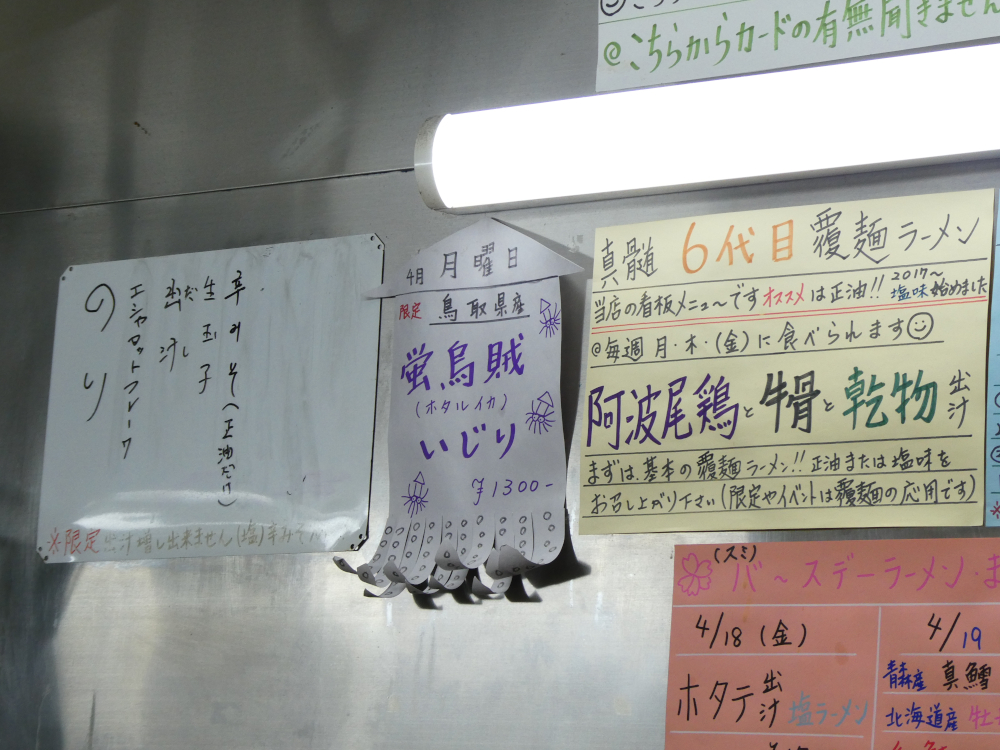 @こちらからカードの有無聞きません
辛みそ(正油だけ)
生玉子
だし汁
エシャロットフレーク
のり
※限定
4月 月曜日
限定 鳥取県産
蛍烏賊
(ホタルイカ)
いじり
¥1300-
真髄 6代目 覆麺ラーメン
当店の看板メニューです オススメは正油!! 2017~塩味始めました
@毎週 月・木・(金)に食べられます
阿波尾鶏と牛骨と乾物出汁
まずは、基本の覆麺ラーメン!! 正油または塩味を
お召し上がり下さい(限定やイベントは覆麺の応用です)
(スミ)
バースデーラーメン・ま
4/18(金)
ホタテ出汁 塩ラーメン
4/19
青森産 真鱈
北海道産 牡